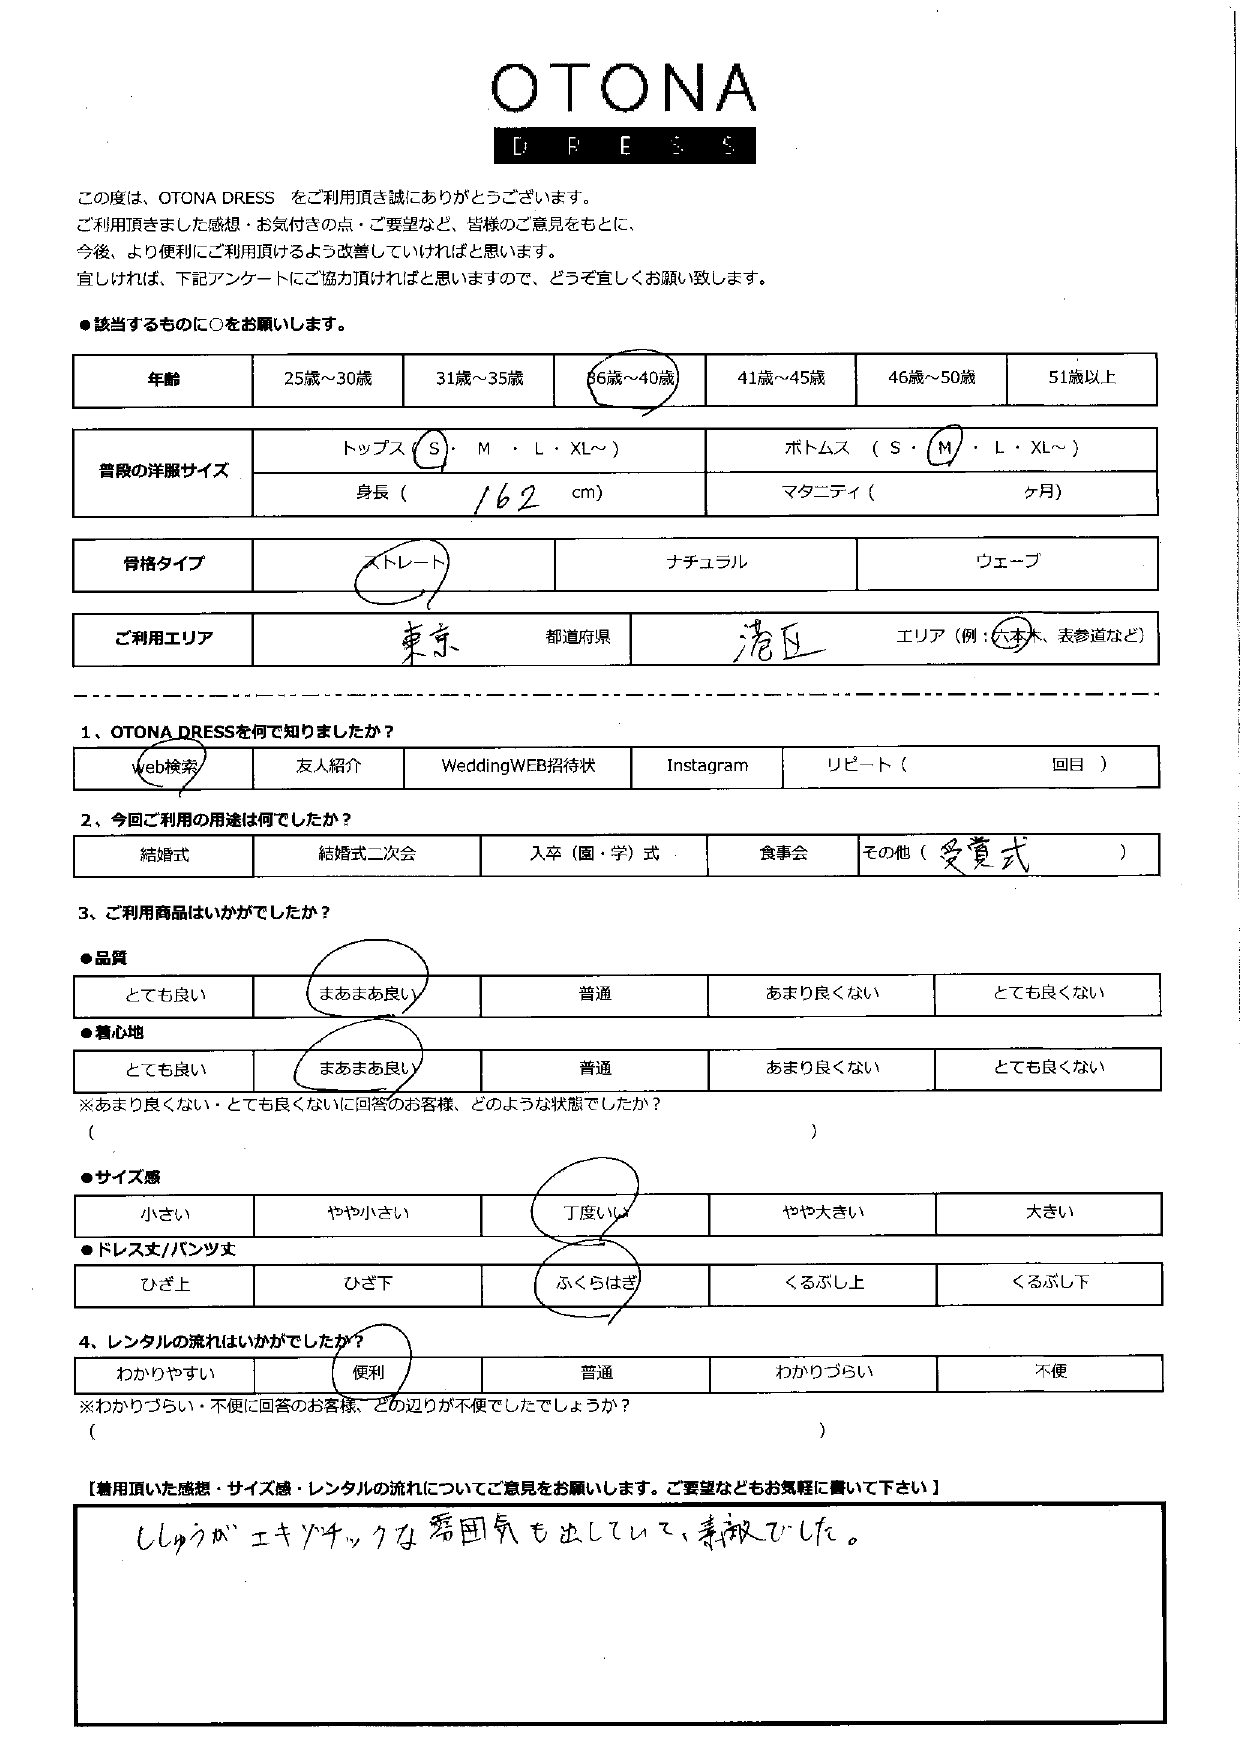 OTONA
DRESS
この度は、OTONA DRESS　をご利用頂き誠にありがとうございます。
ご利用頂きました感想・お気付きの点・ご要望など、皆様のご意見をもとに、
今後、より便利にご利用頂けるよう改善していければと思います。
宜しければ、下記アンケートにご協力頂ければと思いますので、どうぞ宜しくお願い致します。
●該当するものに○をお願いします。
年齢 25歳～30歳 31歳～35歳 36歳～40歳 41歳～45歳 46歳～50歳 51歳以上
普段の洋服サイズ トップス ( S ・ M ・ L ・ XL～ ) ボトムス ( S ・ M ・ L ・ XL～ )
身長 ( 162 cm) マタニティ ( ヶ月)
骨格タイプ ストレート ナチュラル ウェーブ
ご利用エリア 東京 都道府県 港区 エリア（例：六本木、表参道など）
1、OTONA DRESSを何で知りましたか？
web検索 友人紹介 WeddingWEB招待状 Instagram リピート（ 回目 ）
2、今回ご利用の用途は何でしたか？
結婚式 結婚式二次会 入卒（園・学）式 食事会 その他（ 受賞式 ）
3、ご利用商品はいかがでしたか？
●品質
とても良い まあまあ良い 普通 あまり良くない とても良くない
●着心地
とても良い まあまあ良い 普通 あまり良くない とても良くない
※あまり良くない・とても良くないに回答のお客様、どのような状態でしたか？
( )
●サイズ感
小さい やや小さい 丁度いい やや大きい 大きい
●ドレス丈/パンツ丈
ひざ上 ひざ下 ふくらはぎ くるぶし上 くるぶし下
4、レンタルの流れはいかがでしたか？
わかりやすい 便利 普通 わかりづらい 不便
※わかりづらい・不便に回答のお客様、どの辺りが不便でしたでしょうか？
( )
【着用頂いた感想・サイズ感・レンタルの流れについてご意見をお願いします。ご要望などもお気軽に書いて下さい】
ししゅうがエキゾチックな雰囲気も出していて、素敵でした。